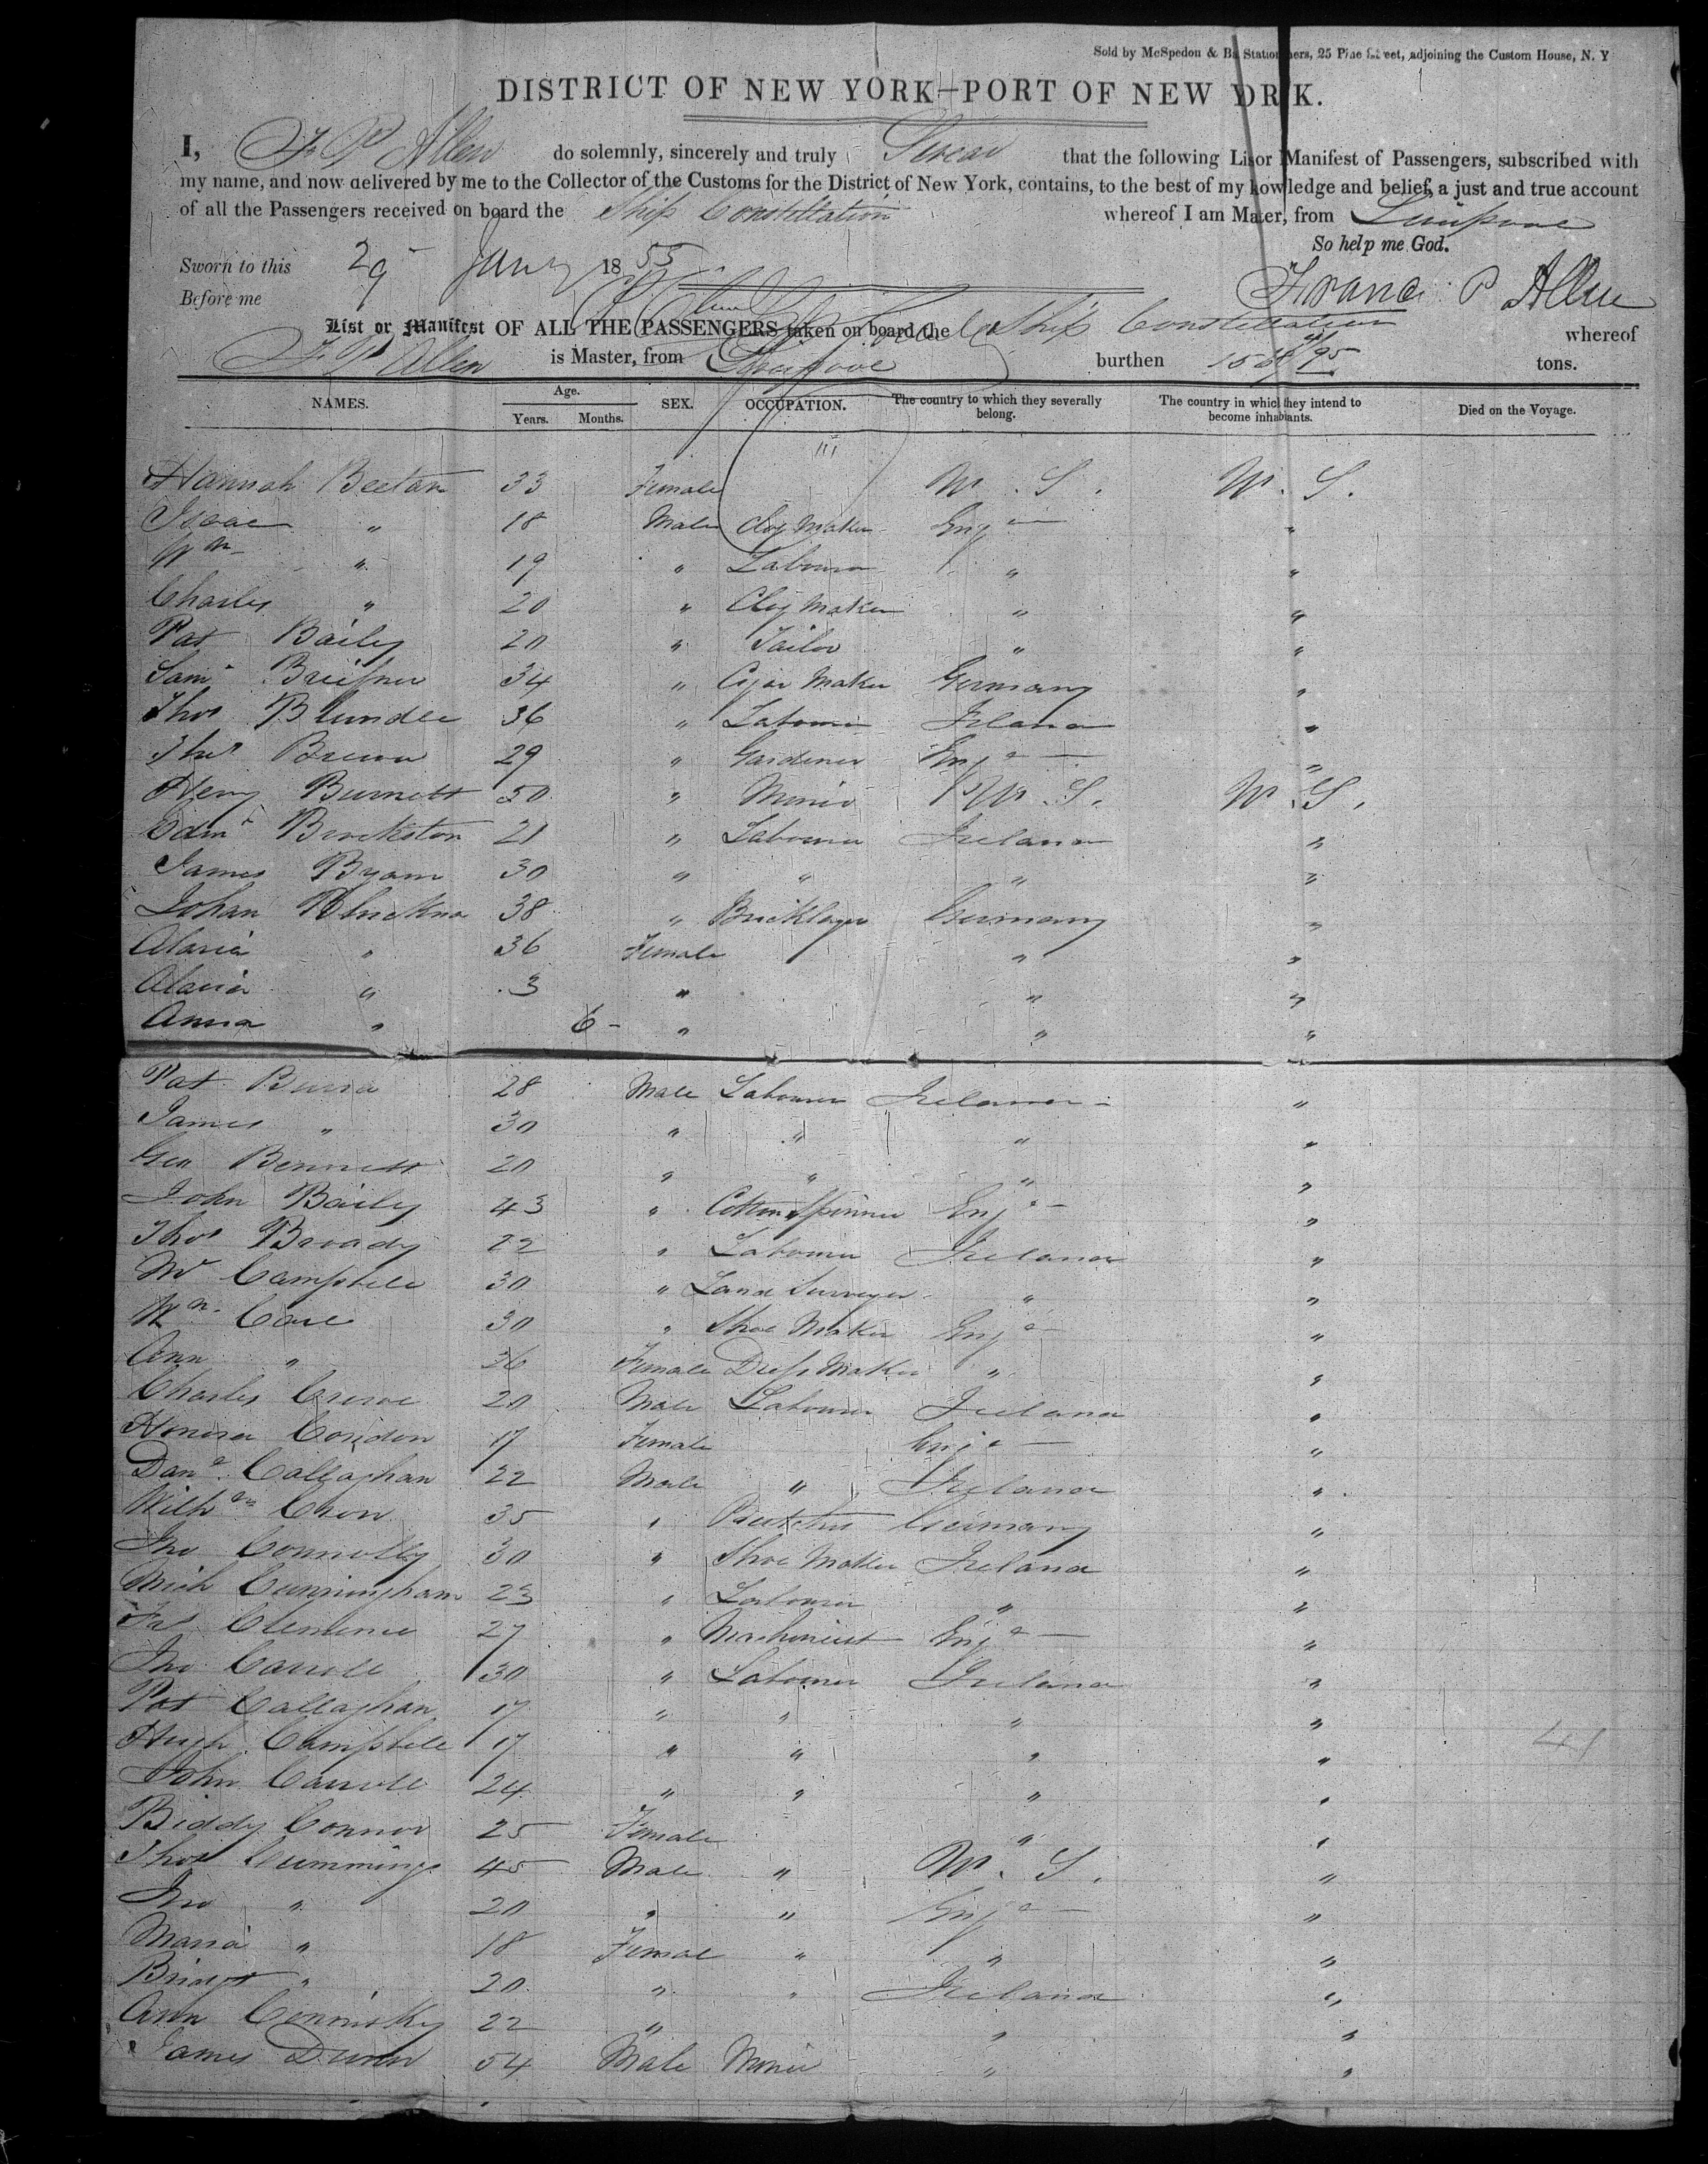 Sold by McSpedon & Ba Stationers, 25 Pine Street, adjoining the Custom House, N. Y
DISTRICT OF NEW YORK—PORT OF NEW YORK.
I, F P Allen do solemnly, sincerely and truly Swear that the following List or Manifest of Passengers, subscribed with
my name, and now delivered by me to the Collector of the Customs for the District of New York, contains, to the best of my knowledge and belief, a just and true account
of all the Passengers received on board the Ship Constellation whereof I am Master, from Liverpool
So help me God.
Sworn to this 29 Jany 1855
Francis P Allen
Before me
List or Manifest OF ALL THE PASSENGERS taken on board the Ship Constellation whereof
F P Allen is Master, from Liverpool burthen tons.
NAMES. Age. Years. Months. SEX. OCCUPATION. The country to which they severally belong. The country in which they intend to become inhabitants. Died on the Voyage.
Hannah Beetan 33 Female U. S. U. S.
Isaac " 18 Male Clog Maker Engd "
Wm " 19 " Labourer " "
Charles " 20 " Clog Maker " "
Pat Baily 20 " Tailor " "
Saml 34 " Cigar Maker Germany "
Thos Blundel 36 " Labourer Ireland "
Thos Brown 29 " Gardener Engd "
Henry Burnett 50 " Miner U. S. U. S.
Edmd Brockston 21 " Labourer Ireland "
James Byam 30 " " " "
Johan 38 " Bricklayer Germany "
Maria " 36 Female " "
Maria " 3 " " "
Anna " 6 " " "
Pat Burra 28 Male Labourer Ireland "
James " 30 " " " "
Geo Bennett 20 " " " "
John Baily 43 " Cotton Spinner Engd "
Thos Broady 22 " Labourer Ireland "
Campbell 30 " Land Surveyor " "
Wm Care 30 " Shoe Maker Engd "
Ann " 36 Female Dress Maker " "
Charles Crowe 20 Male Labourer Ireland "
Honora Condon 17 Female Engd "
Danl Callaghan 22 Male " Ireland "
Wilhm Cron 35 " Butcher Germany "
Jno Connolly 30 " Shoe Maker Ireland "
Mich Cunningham 23 " Labourer " "
Fs Clemence 27 " Machinist Engd "
Jno Carroll 30 " Labourer Ireland "
Pat Callaghan 17 " " " "
Hugh Campbell 17 " " " "
41
John Carroll 24 " " " "
Biddy Connor 25 Female " "
Thos Cummings 45 Male " U. S. "
Jno " 20 " " Engd "
Maria " 18 Female " " "
Bridgt " 20 " " Ireland "
Ann Cominsky 22 " " "
James Diven 54 Male Miner " "